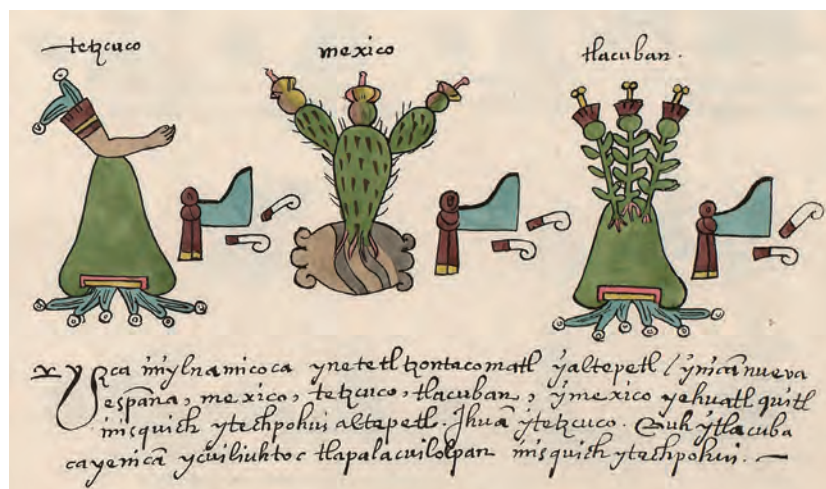 tetzcuco
mexico
tlacuban.
Yzca ynilnamicoca ynetetl tzontecomatl yaltepetl / ynican nueva
españa, mexico, tetzcuco, tlacuban, ymexico yehuatl quitl
misquich ytechpohui altepetl. Jhuā ytetzcuco. Çuh ytlacuba
cayenicā ycuiliuhtoc tlapalacuilolpan misquich ytechpohui. —